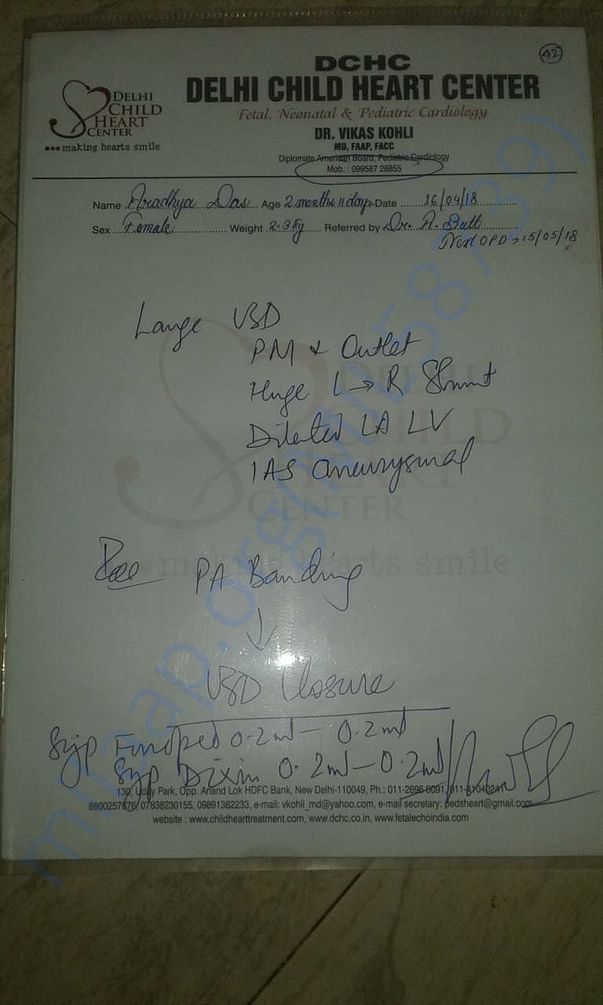 42
DCHC
DELHI CHILD HEART CENTER
Fetal, Neonatal & Pediatric Cardiology
DR. VIKAS KOHLI
MD, FAAP, FACC
Diplomate American Board, Pediatric Cardiology
Mob. : 099587 28855
DELHI
CHILD
HEART
CENTER
...making hearts smile
Name Aradhya Das Age 2 months 11 days Date 16/04/18
Sex Female Weight 2.3 kg Referred by Dr. A. Butt
Next OPD 15/05/18
Large VSD
PM & Outlet
Huge L → R Shunt
Dilated LA LV
IAS aneurysmal
PA Banding
↓
VSD Closure
Syp 0.2ml - 0.2ml
Syp Dixin 0.2ml - 0.2ml
DELHI
CHILD
HEART
CENTER
making hearts smile
130, Uday Park, Opp. Anand Lok HDFC Bank, New Delhi-110049, Ph.: 011-2696 0091, 011-41040241
8600257676, 07838230155, 09891362233, e-mail: vkohli_md@yahoo.com, e-mail secretary: pedsheart@gmail.com
website : www.childhearttreatment.com, www.dchc.co.in, www.fetalechoindia.com